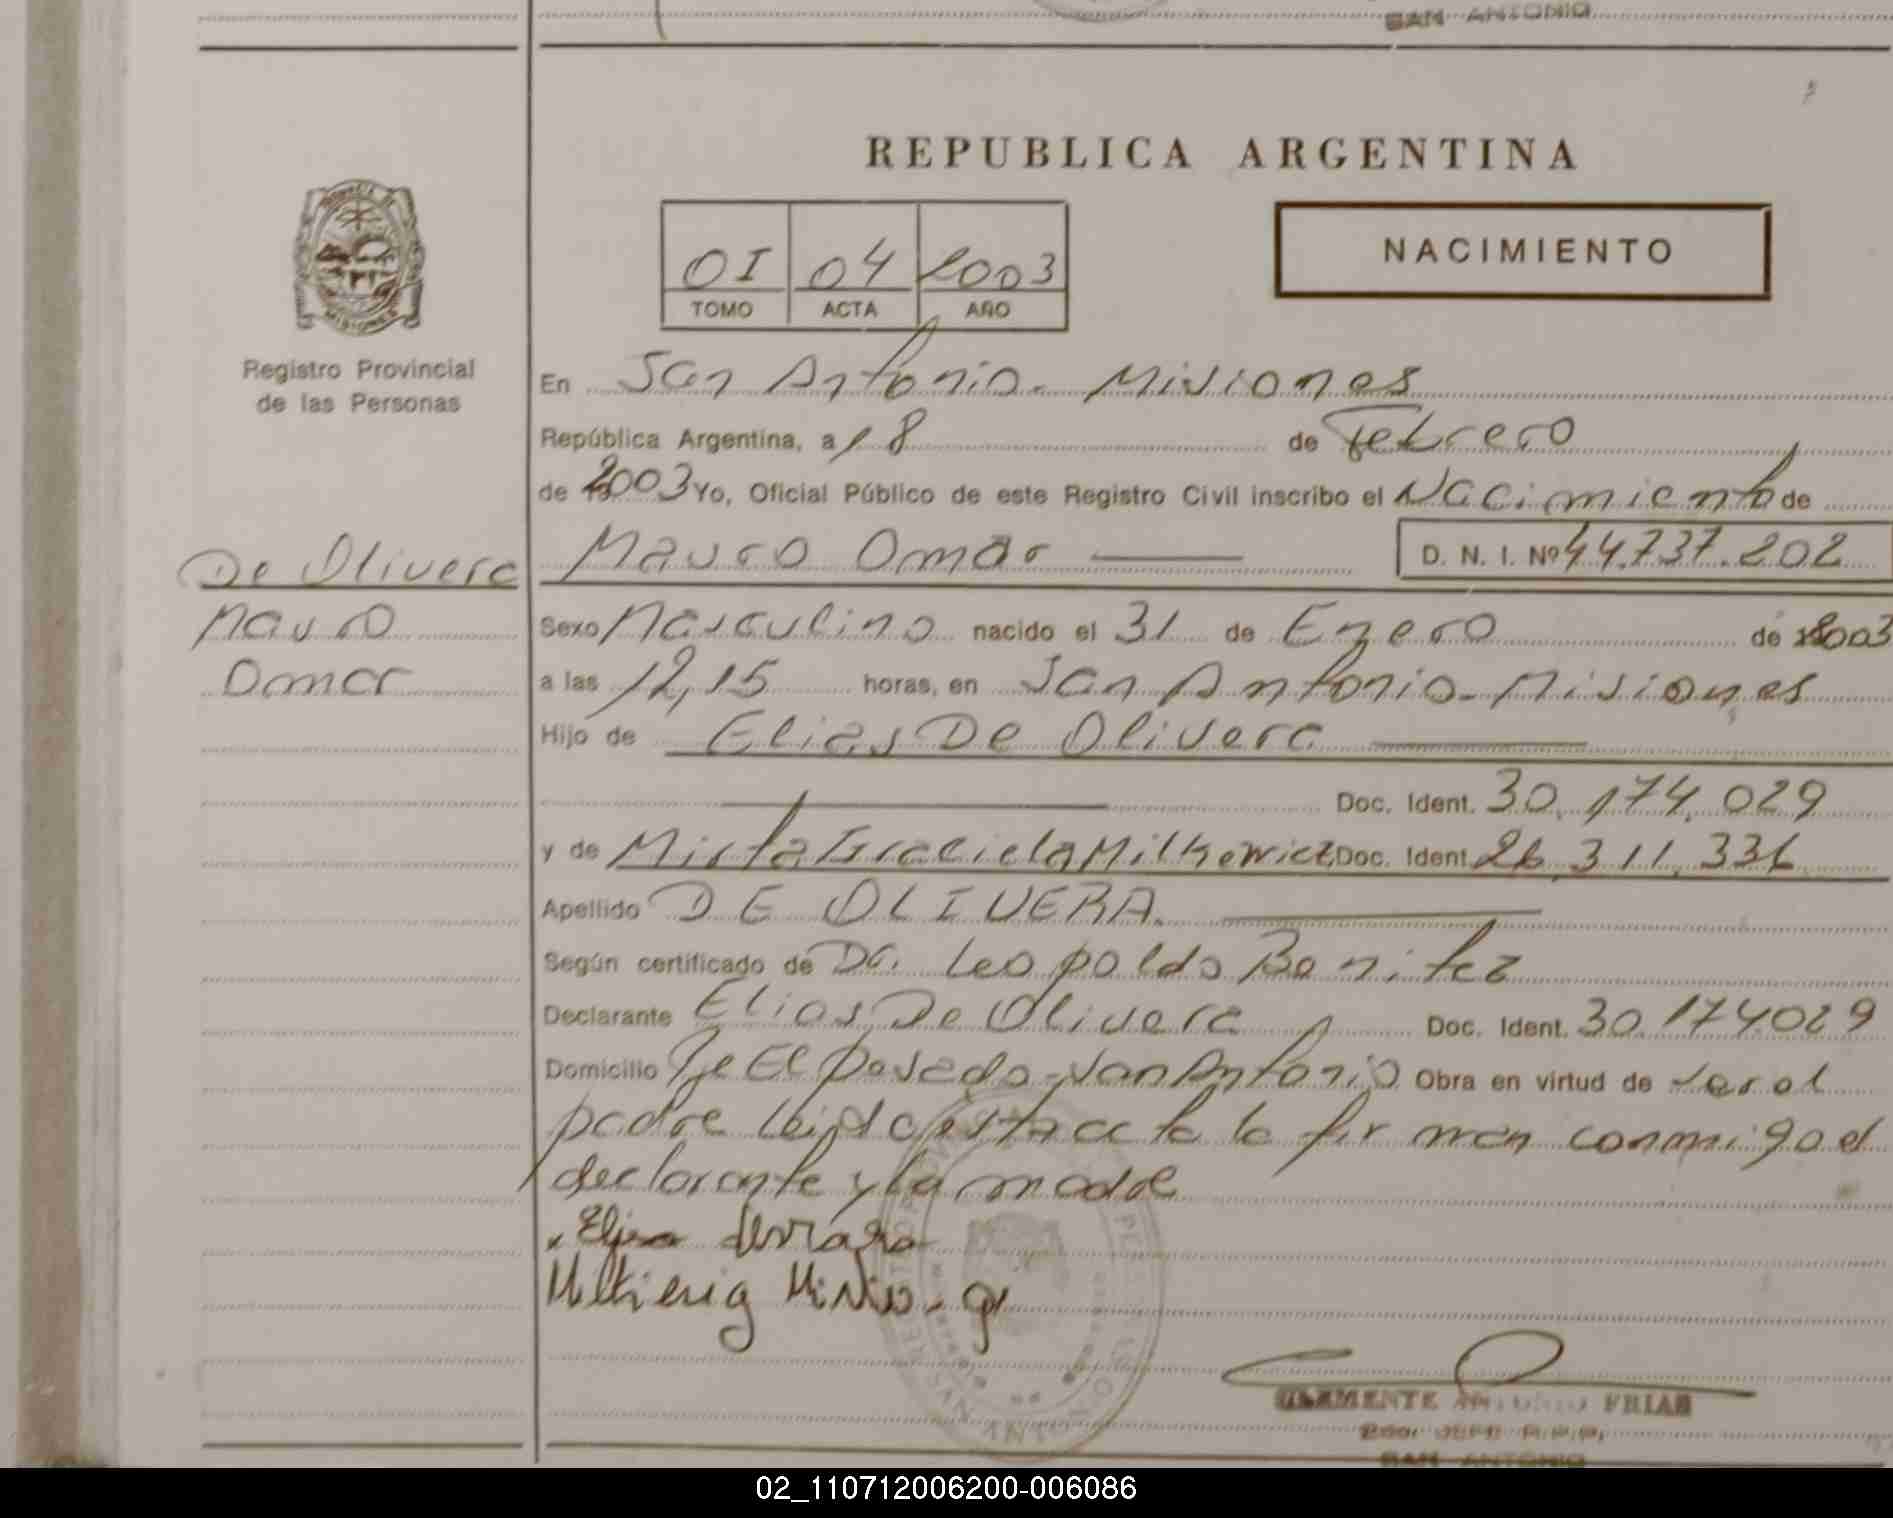 SAN ANTONIO
REPUBLICA ARGENTINA
NACIMIENTO
OI 04 2003
TOMO ACTA AÑO
MISIONES
Registro Provincial
de las Personas
En San Antonio - Misiones
República Argentina, a 18 de Febrero
de 2003 Yo, Oficial Público de este Registro Civil inscribo el Nacimiento de
De Olivera
Mauro
Omar
Mauro Omar
D. N. I. Nº 44.737.202
Sexo Masculino nacido el 31 de Enero de 2003
a las 12,15 horas, en San Antonio - Misiones
Hijo de Elias De Olivera
Doc. Ident. 30.174.029
y de Mirta Graciela Milkewicz Doc. Ident. 26.311.336
Apellido DE OLIVERA.
Según certificado de Dr. Leopoldo Benitez
Declarante Elias De Olivera Doc. Ident. 30.174029
Domicilio El Posado - San Antonio Obra en virtud de ser el
padre Leida esta acta la firman conmigo el
declarante y la madre
CLEMENTE ANTONIO FRIAS
JEFE R.P.P.
SAN ANTONIO
02_110712006200-006086